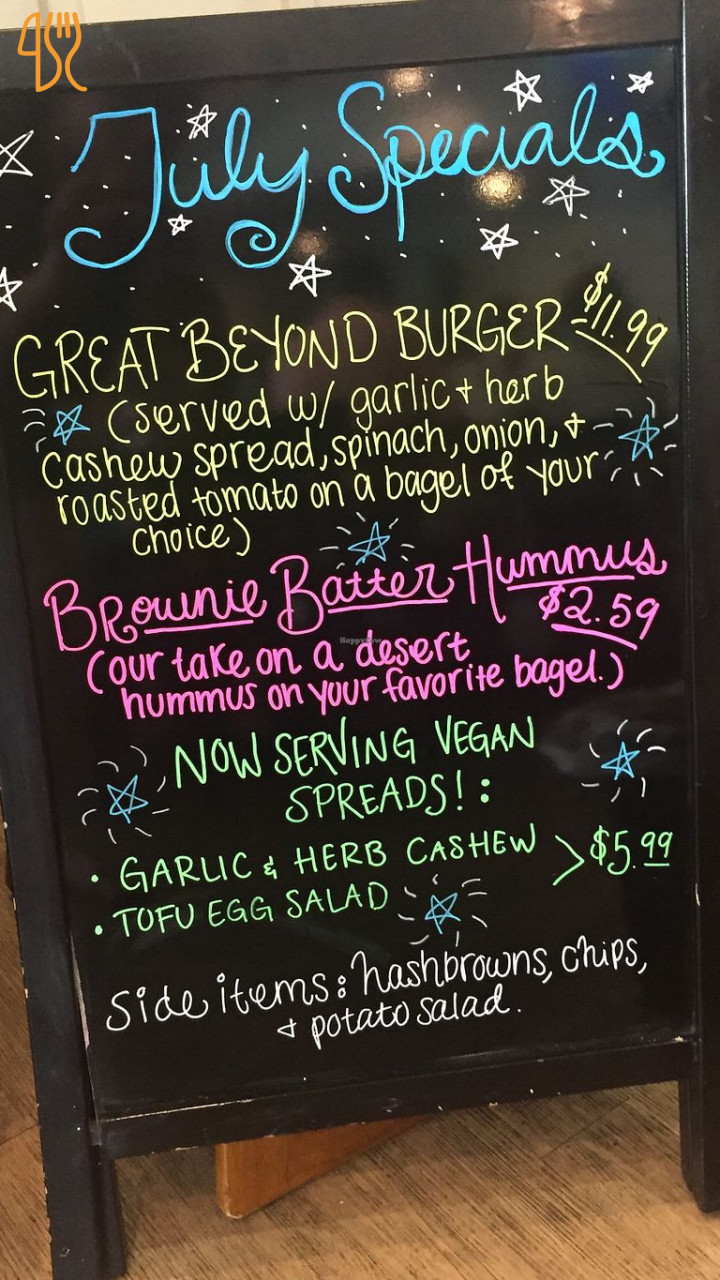 July Specials
GREAT BEYOND BURGER $11.99
(served w/ garlic + herb
cashew spread, spinach, onion, +
roasted tomato on a bagel of your
choice)
Brownie Batter Hummus
$2.59
(our take on a desert
hummus on your favorite bagel.)
NOW SERVING VEGAN
SPREADS! :
• GARLIC & HERB CASHEW > $5.99
• TOFU EGG SALAD
Side items: hashbrowns, chips,
+ potato salad.
HappyCow